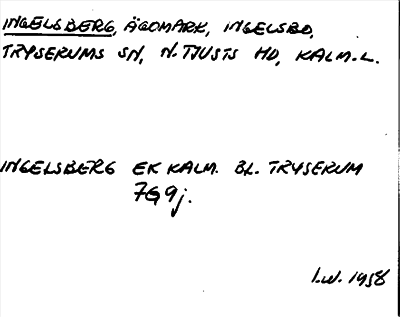 INGELSBERG, ÄGOMARK, INGELSBO,
TRYSERUMS SN, N. TJUSTS HD, KALM. L.
INGELSBERG EK KALM. BL. TRYSERUM
7G 9j.
I.W. 1958